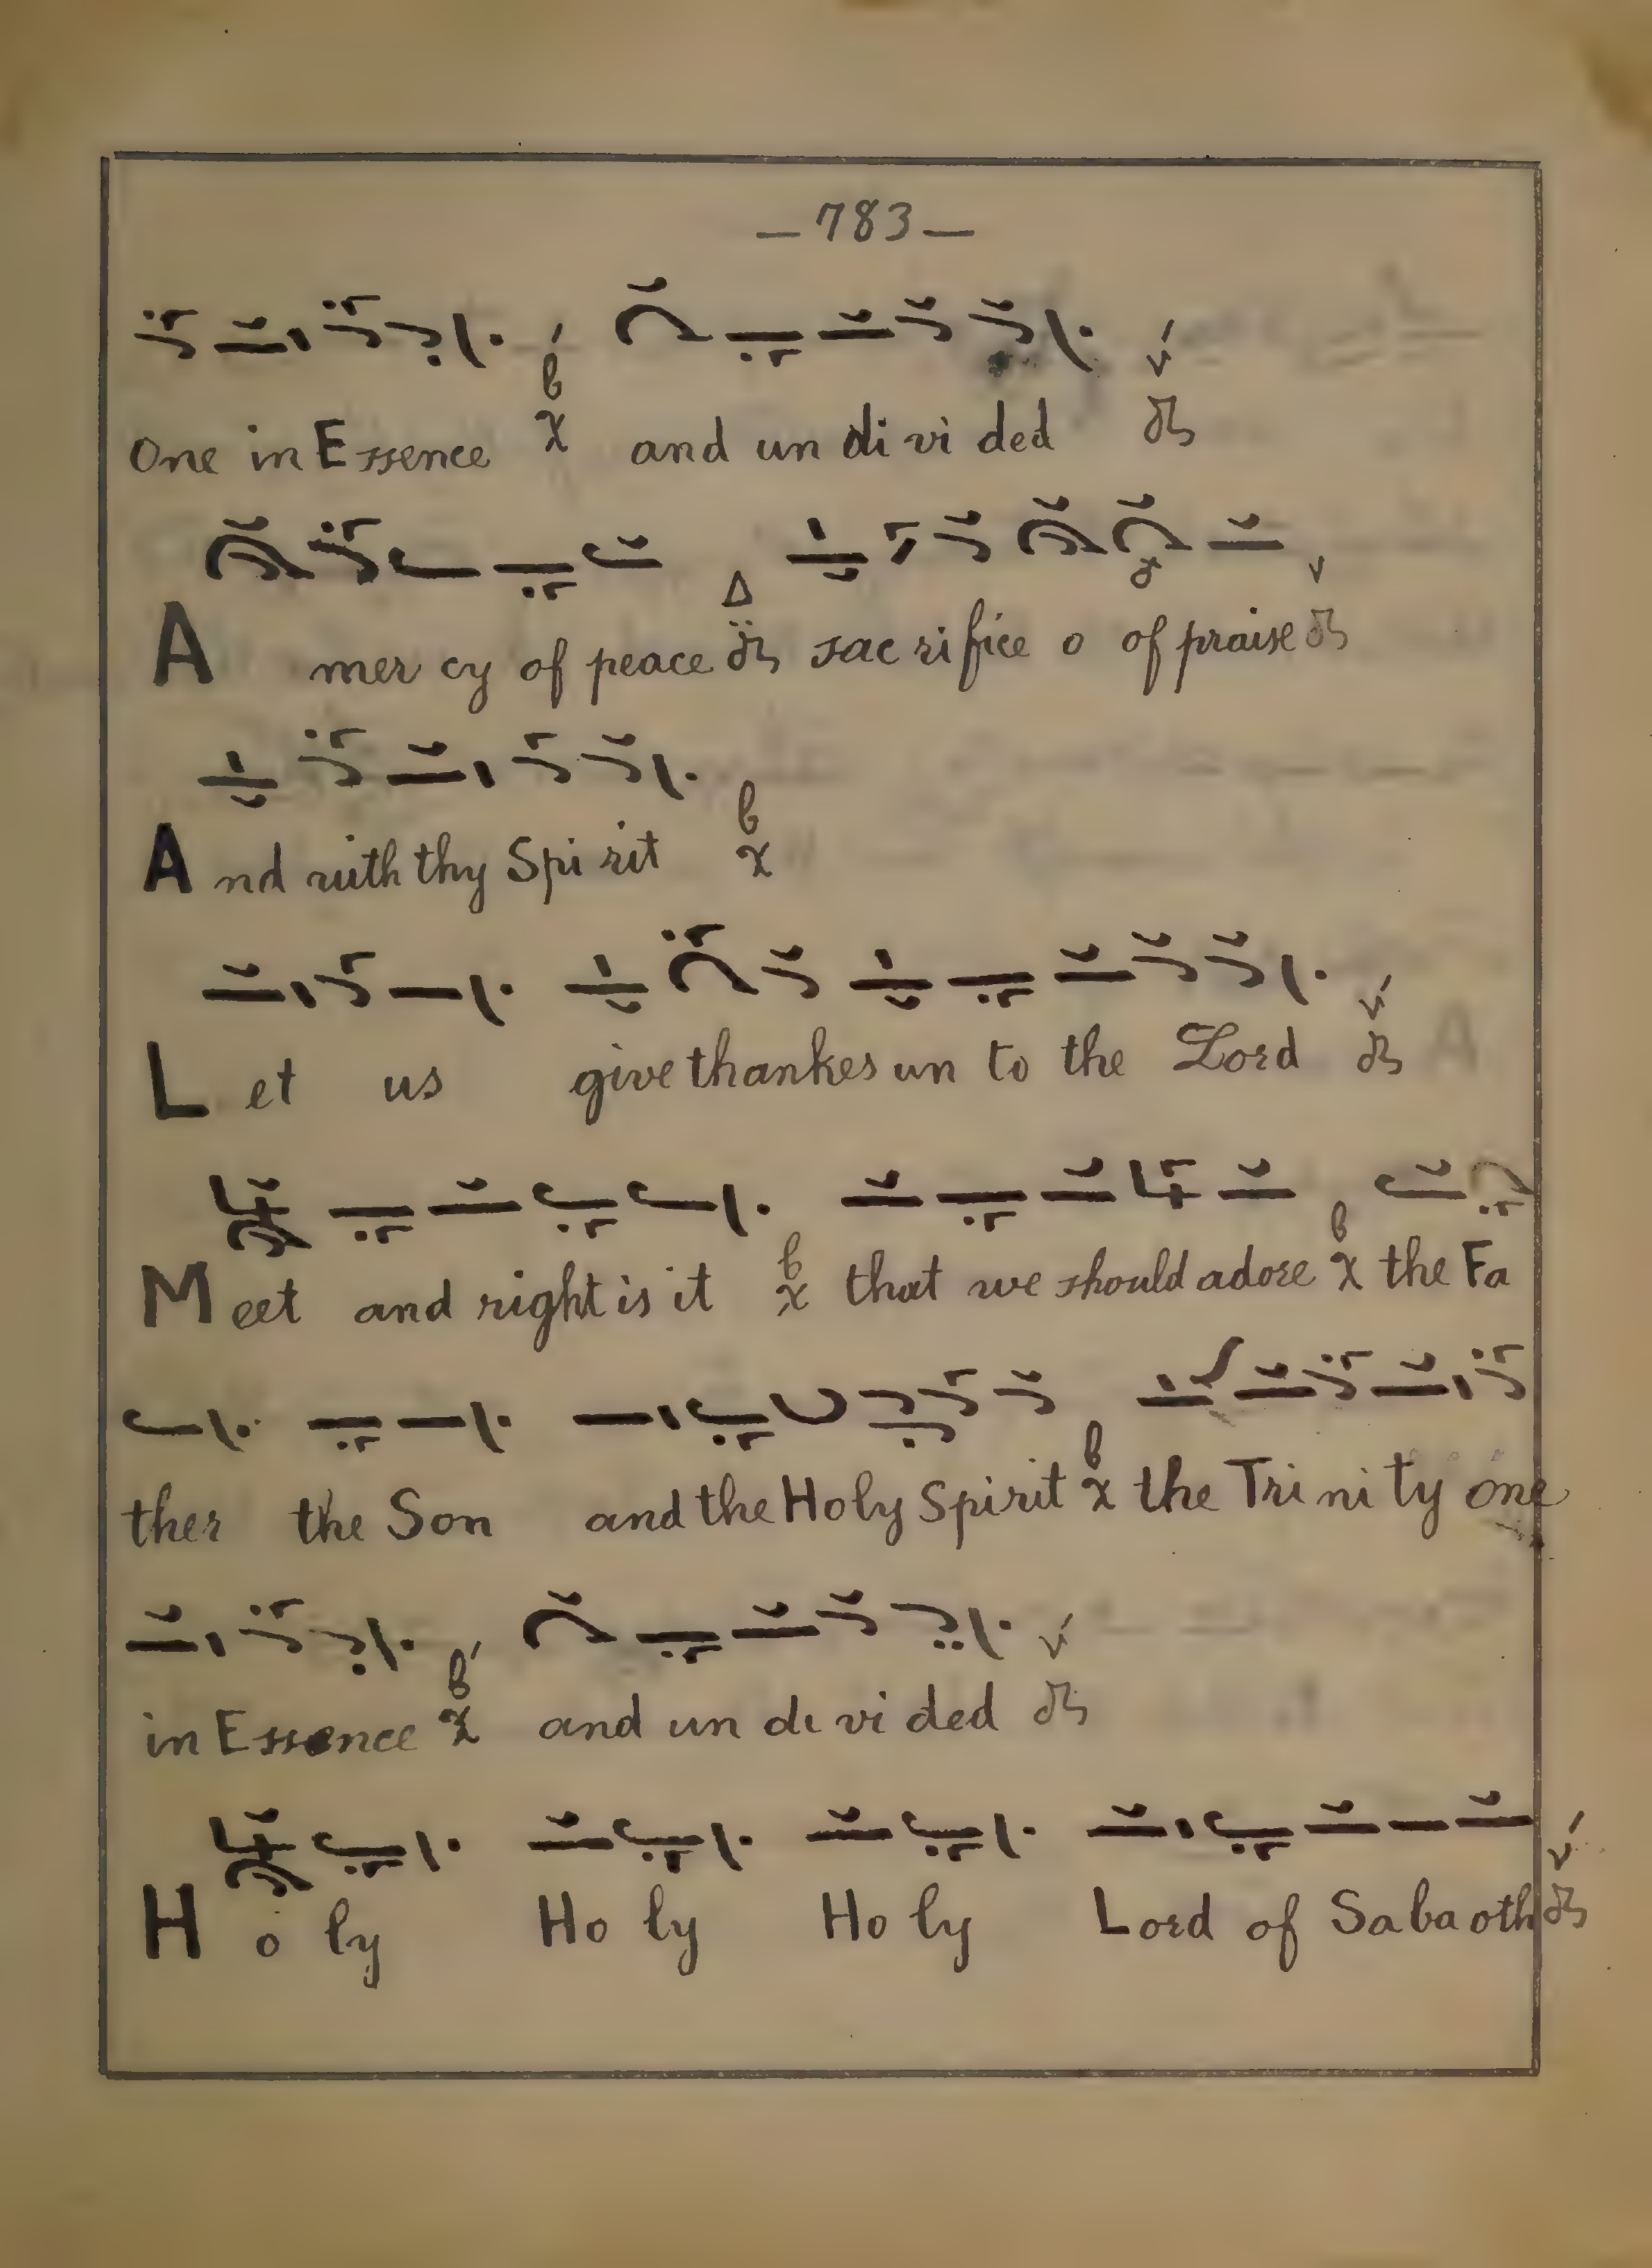 — 783 —
One in Essence and un di vi ded
A mer cy of peace sac ri fice o of praise
And with thy Spi rit
Let us give thankes un to the Lord
Meet and right is it that we should adore the Fa
ther the Son and the Holy Spirit the Tri ni ty one
in Essence and un di vi ded
Ho ly Ho ly Ho ly Lord of Sa ba oth